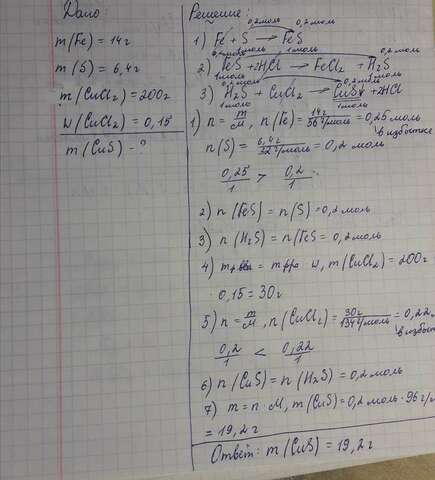 Дано:
m(Fe) = 14г
m(S) = 6,4г
m(CuCl₂) = 200г
w(CuCl₂) = 0,15
m(CuS) - ?
Решение:
0,2моль 0,2моль
1) Fe + S → FeS
1моль 0,2моль
2) FeS + 2HCl → FeCl₂ + H₂S
1моль 0,2моль
3) H₂S + CuCl₂ → CuS↓ + 2HCl
1моль 1моль
1) n = m/M, n(Fe) = 14г/56г/моль = 0,25моль
в избытке
n(S) = 6,4г/32г/моль = 0,2 моль
0,25/1 > 0,2/1
2) n(FeS) = n(S) = 0,2моль
3) n(H₂S) = n(FeS = 0,2моль
4) = mрра · w, m(CuCl₂) = 200г ·
0,15 = 30г
5) n = m/M, n(CuCl₂) = 30г/134г/моль = 0,22
в избытк
0,2/1 < 0,22/1
6) n(CuS) = n(H₂S) = 0,2моль
7) m = n · M, m(CuS) = 0,2моль · 96г/м
= 19,2г
Ответ: m(CuS) = 19,2г